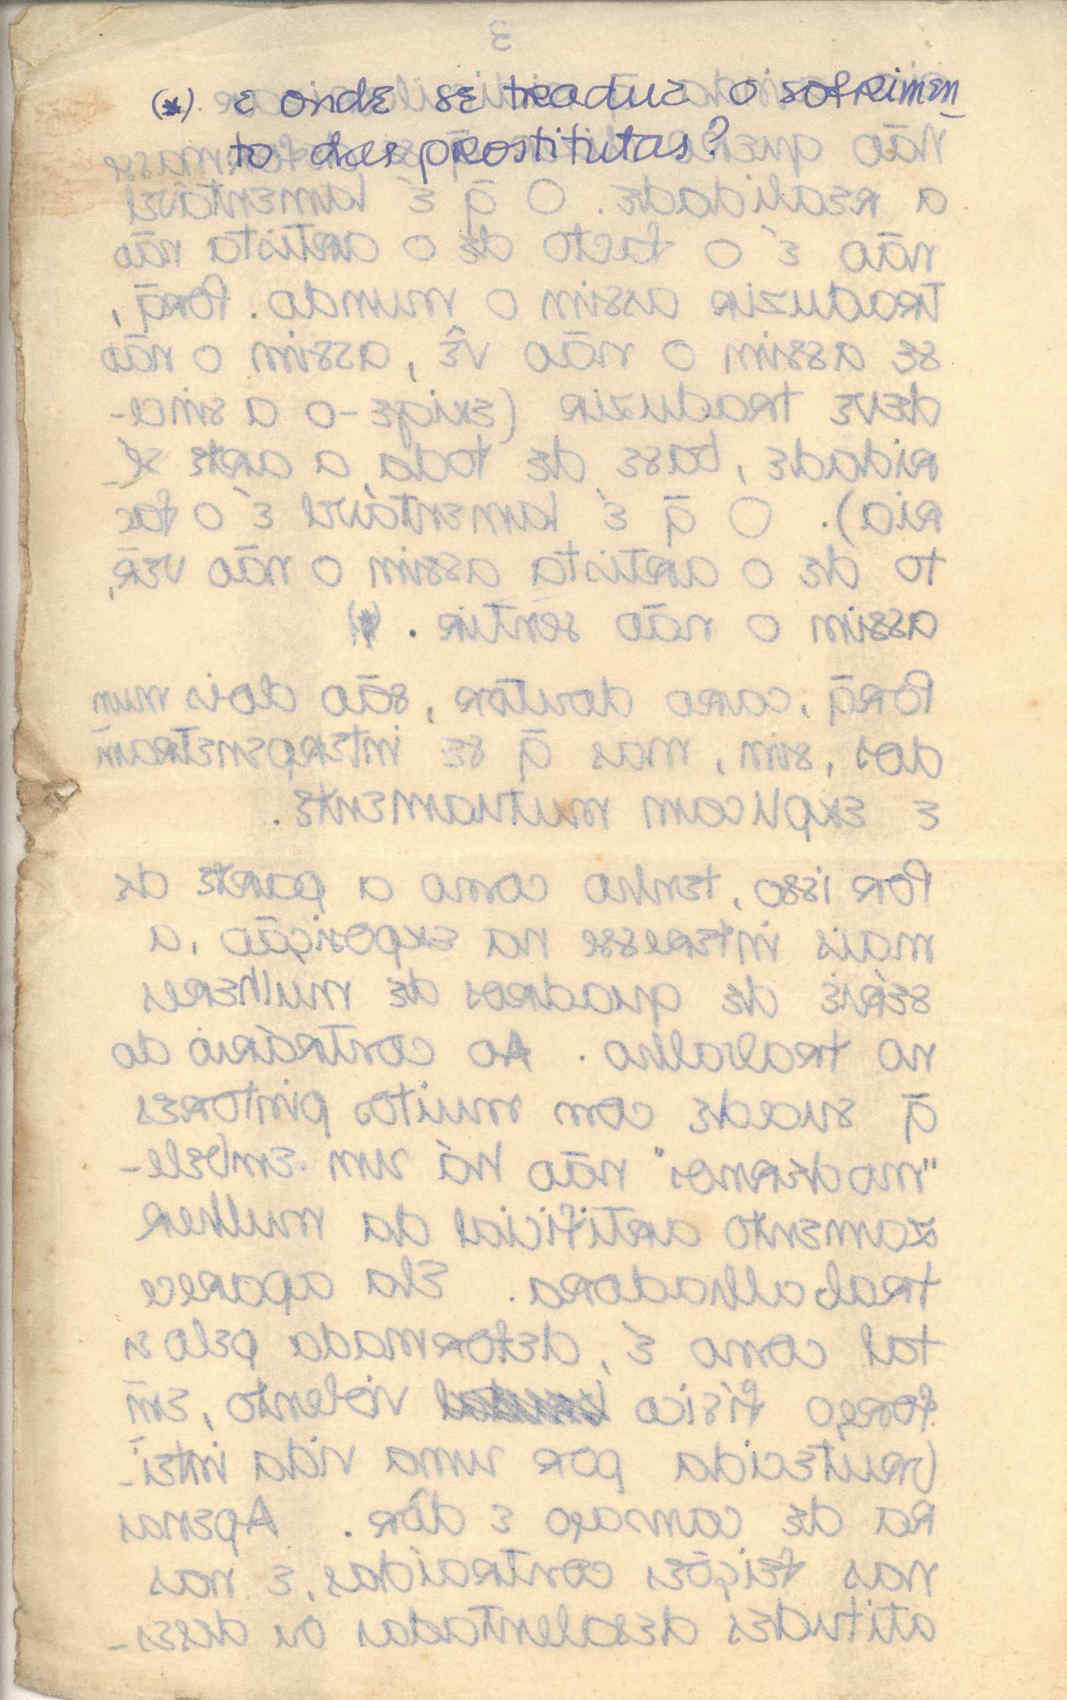 3
(*) e onde se traduz o sofrimen-
to das prostitutas?
não
a realidade. O q̄ é lamentável
não é o facto de o artista não
traduzir assim o mundo. Porq̄,
se assim o não vê, assim o não
deve traduzir (exige-o a since-
ridade, base de toda a arte sé-
ria). O q̄ é lamentável é o fac
to de o artista assim o não ver,
assim o não sentir. (*)
Porq̄, caro doutor, são dois mun
dos, sim, mas q̄ se interpenetram
e explicam mutuamente.
Por isso, tenho como a parte de
mais interesse na exposição, a
série de quadros de mulheres
no trabalho. Ao contrário do
q̄ sucede com muitos pintores
"modernos" não há um embele-
zamento artificial da mulher
trabalhadora. Ela aparece
tal como é, deformada pelo es
forço físico violento, em
brutecida por uma vida intei-
ra de cansaço e dôr. Apenas
nas feições contraídas, e nas
atitudes desalentadas ou deses-